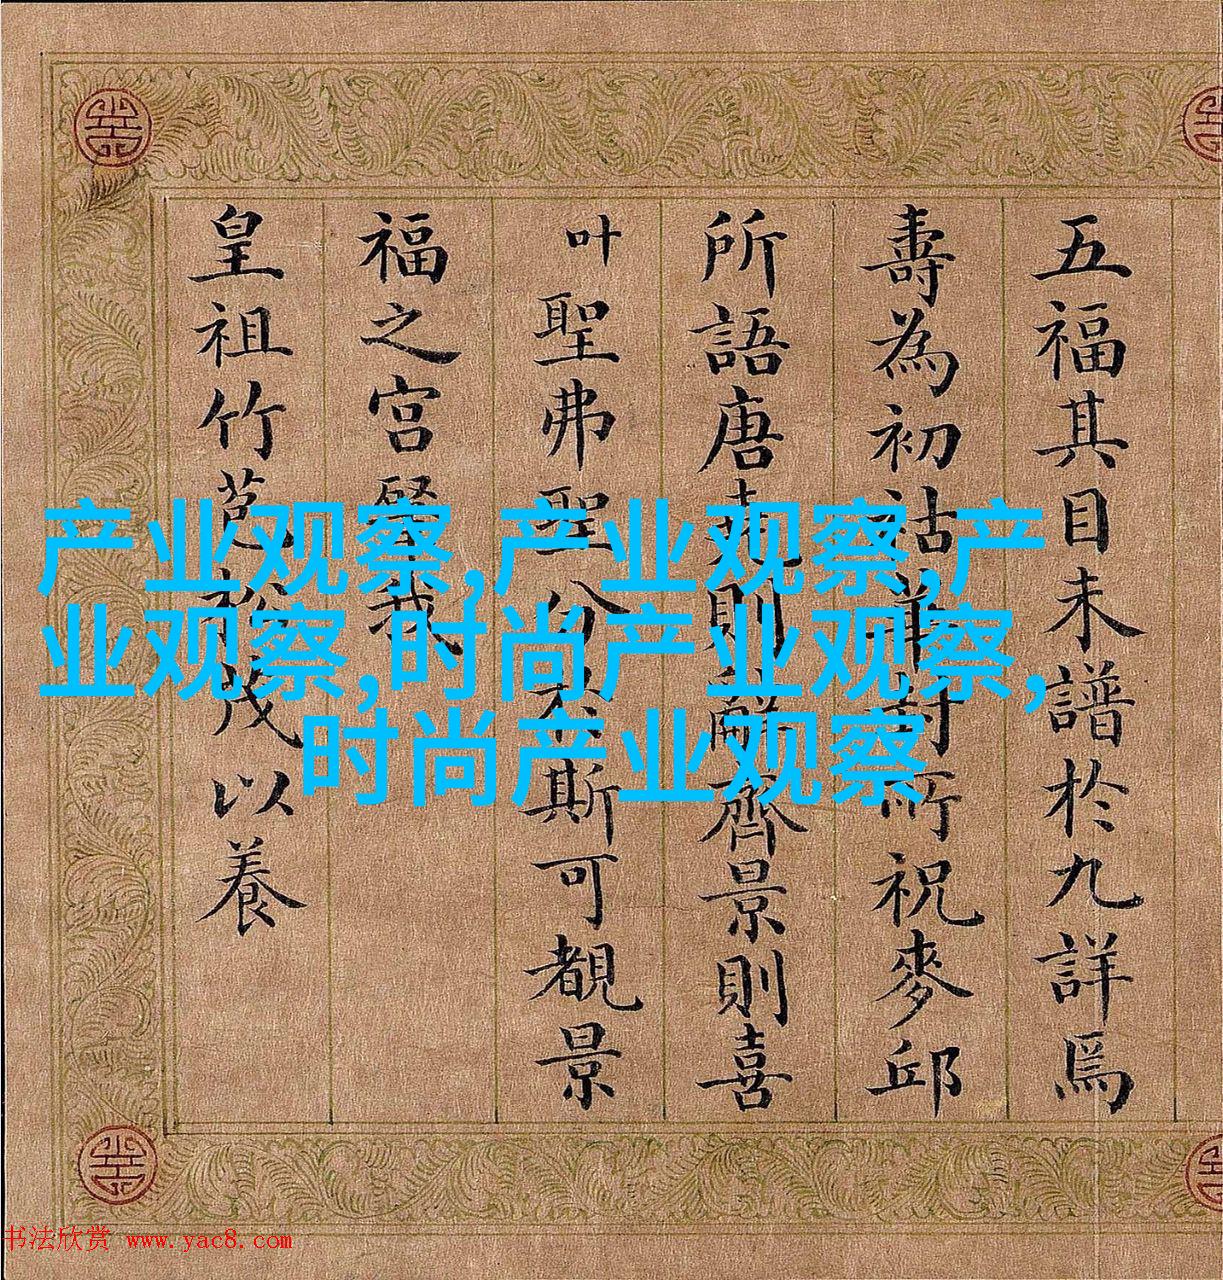 五福其目未譜於九詳爲
壽為初祜華封所祝麥邱
所語唐堯則辭齊景則喜
叶聖弗聖分不斯可覩景
福之宮緊我
皇祖竹苞松茂以養
产业观察,产业观察,产
业观察,时尚产业观察,
时尚产业观察
书法欣赏 www.yac8.com